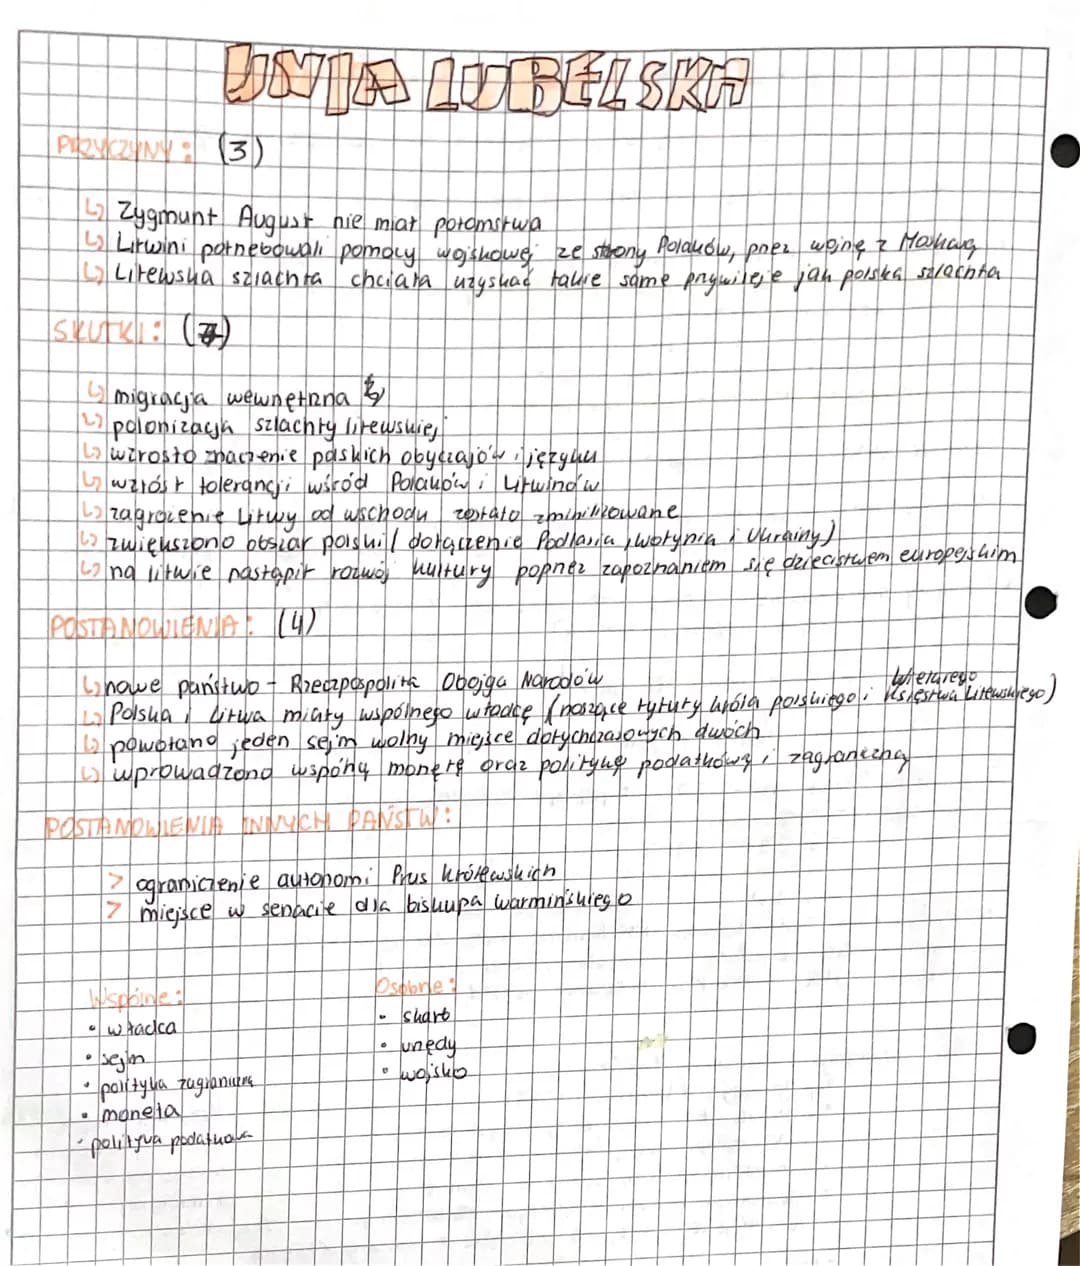 UNIA LUBELSKA
PRZYCZYNY: (3)
↳ Zygmunt August nie miał potomstwa
↳ Litwini potrzebowali pomocy wojskowej ze strony Polaków, przez wojnę z Moskwą
↳ Litewska szlachta chciała uzyskać takie same przywileje jak polska szlachta
SKUTKI: (7)
↳ migracja wewnętrzna
↳ polonizacja szlachty litewskiej
↳ wzrosło znaczenie polskich obyczajów i języku
↳ wzrost tolerancji wśród Polaków i Litwinów
↳ zagrożenie Litwy od wschodu zostało zminilizowane
↳ zwiększono obszar polski (dołączenie Podlasia, Wołynia i Ukrainy)
↳ na litwie nastąpił rozwój kultury poprzez zapoznaniem się dziecistwem europejskim
POSTANOWIENIA: (4)
↳ nowe państwo - Rzeczpospolita Obojga Narodów
↳ Polska i Litwa miały wspólnego władcę (noszące tytuły króla polskiego i Wielkiego Księstwa Litewskiego)
↳ powołano jeden sejm wolny miejsce dotychczasowych dwóch
↳ wprowadzono wspólną monetę oraz politykę podatkową i zagraniczną
POSTANOWIENIA INNYCH PAŃSTW:
> ograniczenie autonomi Prus Królewskich
> miejsce w senacie dla biskupa warmińskiego
Wspólne:
• władca
• sejm
• polityka zagraniczna
• moneta
• polityka podatkowa
Osobne:
• skarb
• urzędy
• wojsko